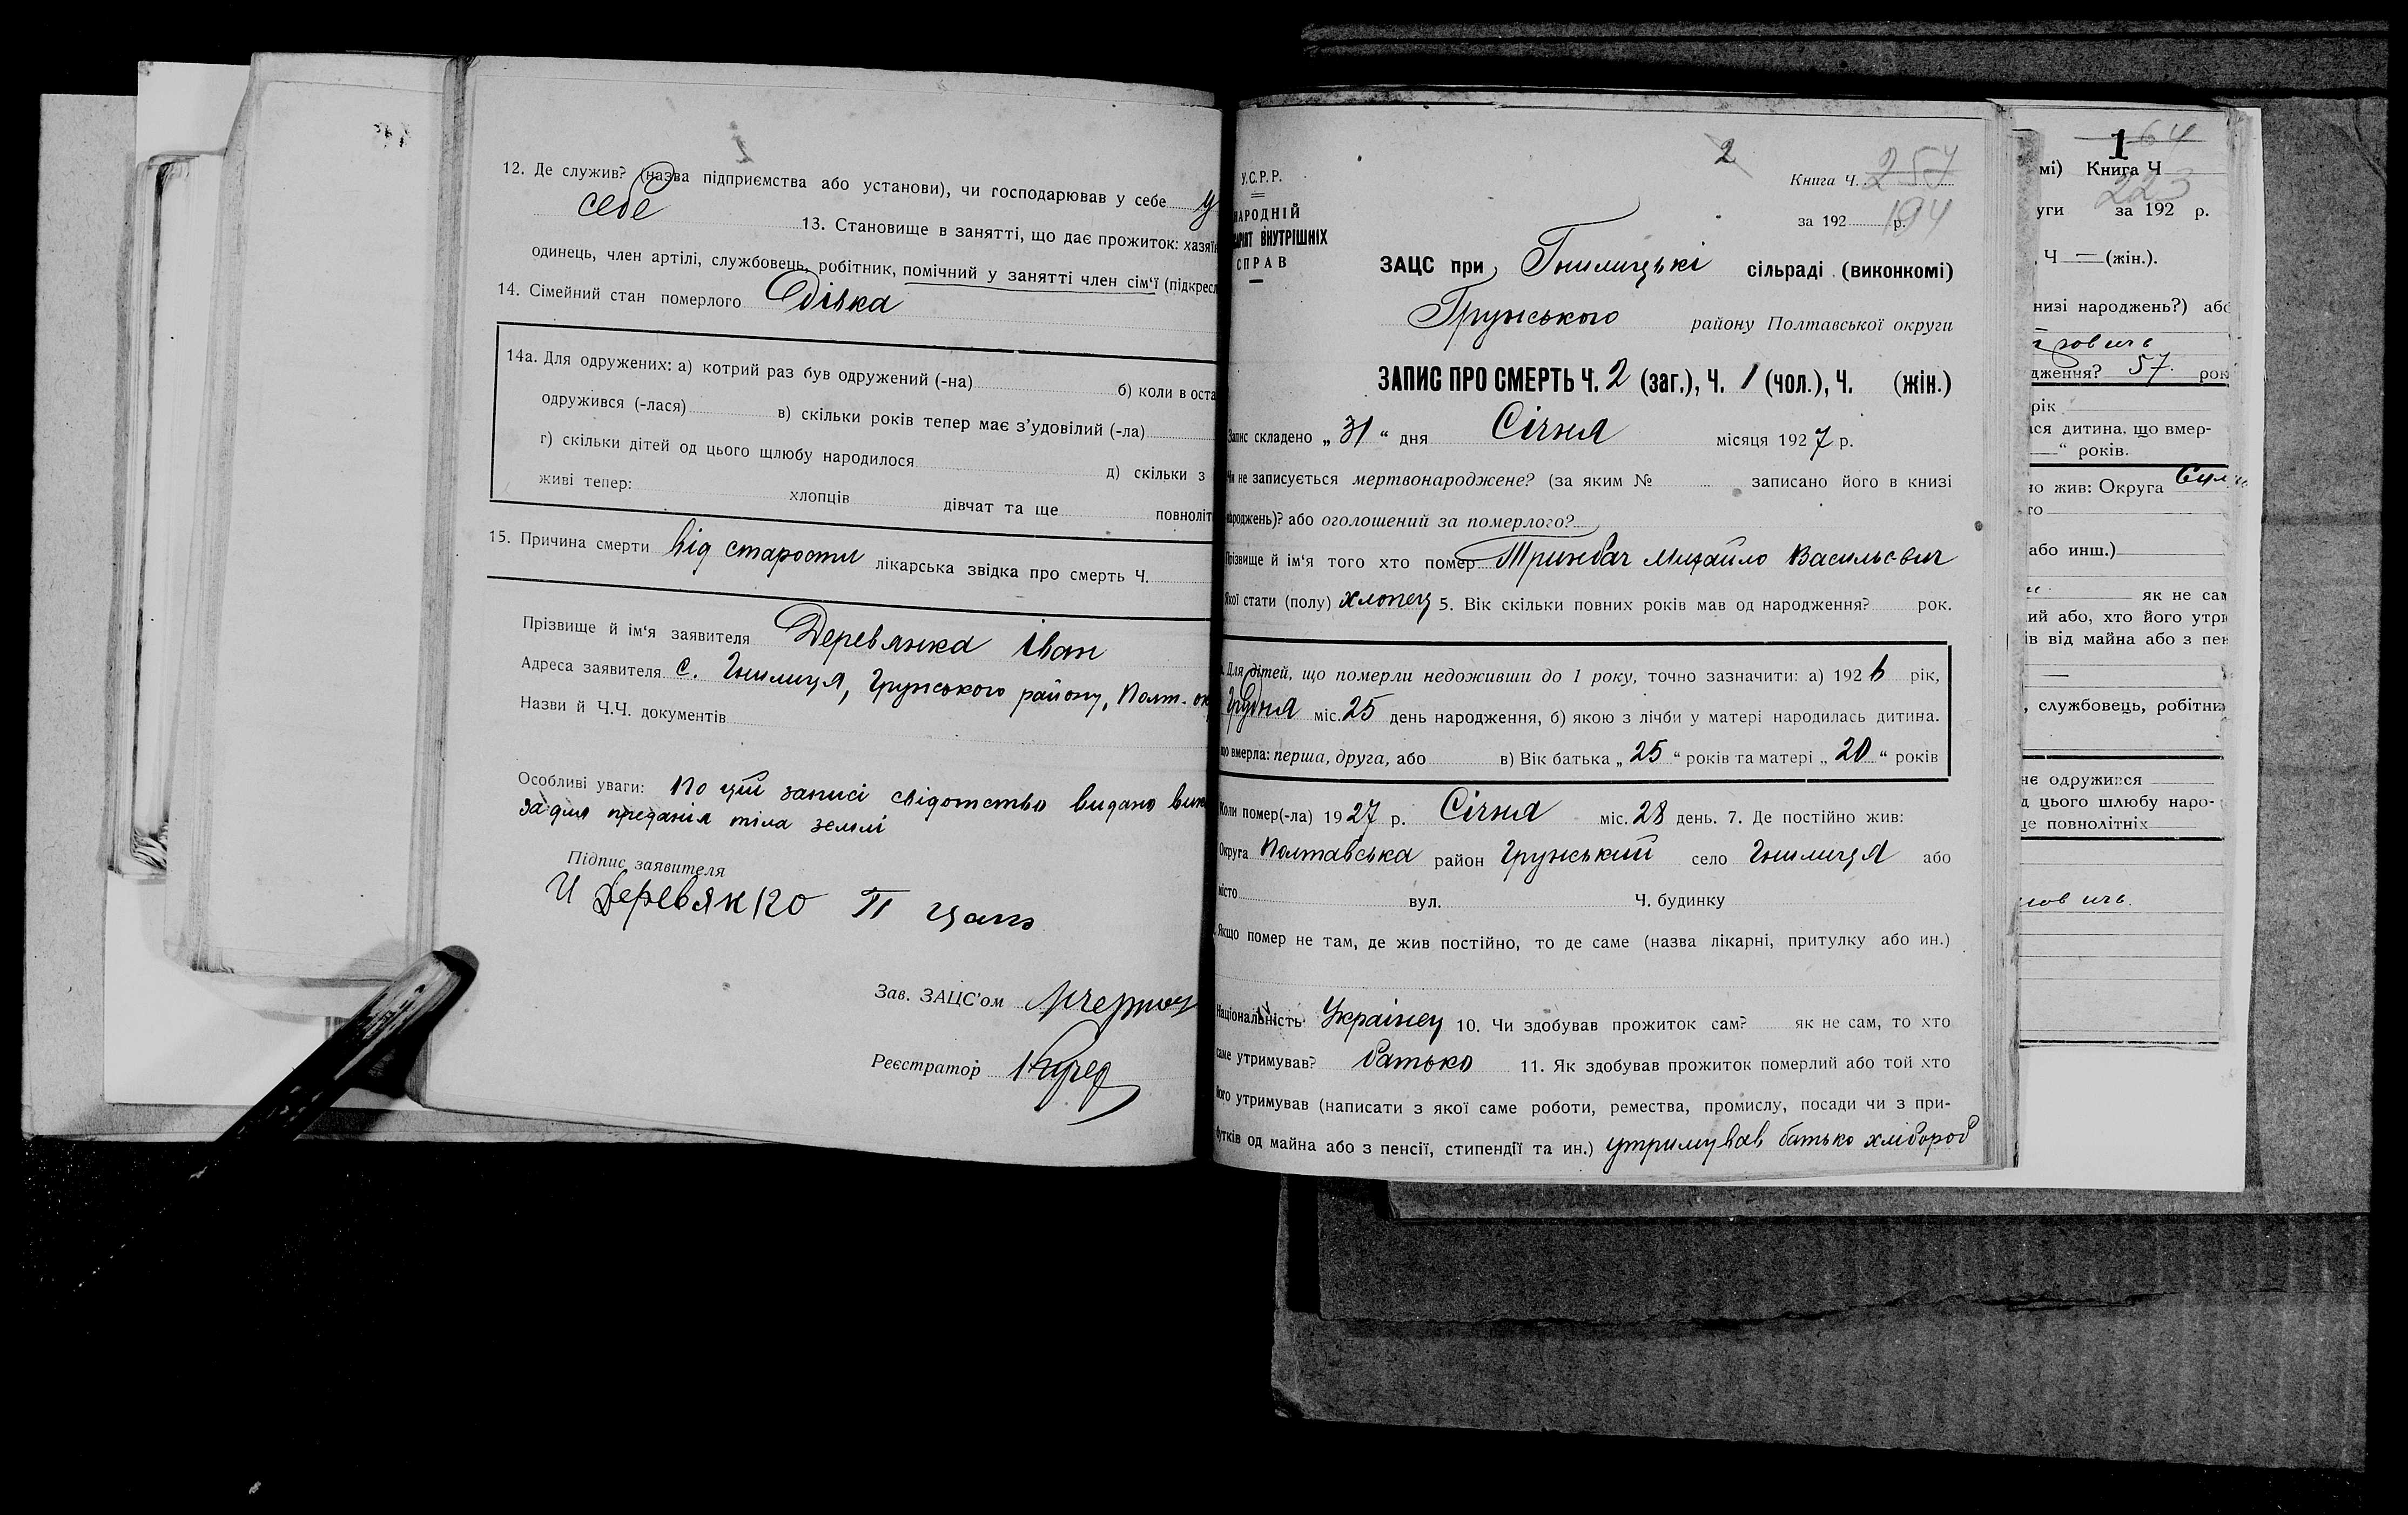 12. Де служив? (назва підприємства або установи), чи господарював у себе у
себе 13. Становище в занятті, що дає прожиток: хазяїн
одинець, член артілі, службовець, робітник, помічний у занятті член сім'ї (підкресл
14. Сімейний стан померлого Вдівка
14а. Для одружених: а) котрий раз був одружений (-на) б) коли в оста
одружився (-лася) в) скільки років тепер має з'удовілий (-ла)
г) скільки дітей од цього щлюбу народилося д) скільки з
живі тепер: хлопців дівчат та ще повноліт
15. Причина смерти від старости лікарська звідка про смерть Ч.
Прізвище й ім'я заявителя Деревянка Іван
Адреса заявителя с. Гнилиця, Грунського району, Полт. ок
Назви й Ч.Ч. документів
Особливі уваги: По цій записі свідотство видано
за для предання тіла землі
Підпис заявителя
И Деревякко
Зав. ЗАЦС'ом
Реєстратор
2
У.С.Р.Р.
Книга Ч. 257
НАРОДНІЙ
за 192 р. 194
АРІЯТ ВНУТРІШНІХ
СПРАВ
ЗАЦС при Гнилицькі сільраді (виконкомі)
Грунського району Полтавської округи
ЗАПИС ПРО СМЕРТЬ Ч. 2 (заг.), Ч. 1 (чол.), Ч. (жін.)
Запис складено „ 31 “ дня Січня місяця 1927 р.
Чи не записується мертвонароджене? (за яким № записано його в книзі
народжень)? або оголошений за померлого?
Прізвище й ім'я того хто помер Тринбач Михайло Васильєвич
Якої стати (полу) хлопец 5. Вік скільки повних років мав од народження? рок.
Для дітей, що померли недоживши до 1 року, точно зазначити: а) 1926 рік,
Грудня міс. 25 день народження, б) якою з лічби у матері народилась дитина.
що вмерла: перша, друга, або в) Вік батька „ 25 “ років та матері „ 20 “ років
Коли помер(-ла) 1927 р. Січня міс. 28 день. 7. Де постійно жив:
Округа Полтавська район Грунський село Гнилиця або
місто вул. Ч. будинку
Якщо помер не там, де жив постійно, то де саме (назва лікарні, притулку або ин.)
Національність Українец 10. Чи здобував прожиток сам? як не сам, то хто
саме утримував? батько 11. Як здобував прожиток померлий або той хто
його утримував (написати з якої саме роботи, ремества, промислу, посади чи з при-
бутків од майна або з пенсії, стипендії та ин.) утримував батько хлібороб
1 64
мі) Книга Ч
223
уги за 192 р.
Ч — (жін.).
низі народжень?) або
дження? 57 рок
рік
ся дитина, що вмер-
— “ років.
но жив: Округа
го
або инш.)
як не сам
ий або, хто його утри
ів від майна або з пен
, службовець, робітник
не одружився
д цього шлюбу наро-
ще повнолітніх